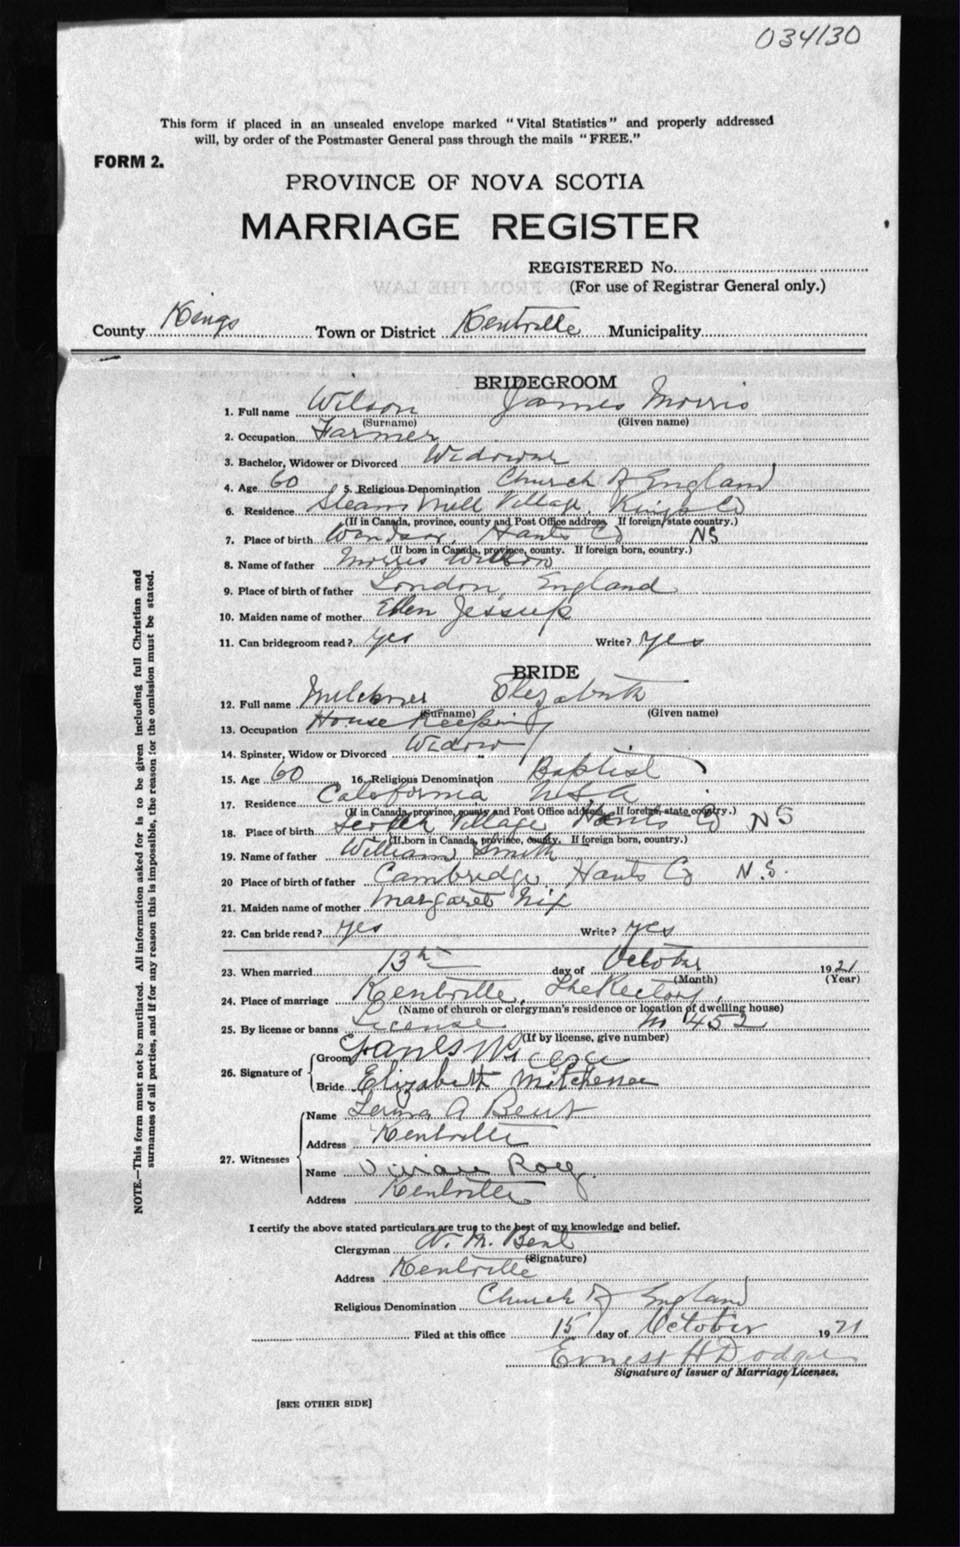 034130
This form if placed in an unsealed envelope marked "Vital Statistics" and properly addressed
will, by order of the Postmaster General pass through the mails "FREE."
FORM 2.
PROVINCE OF NOVA SCOTIA
MARRIAGE REGISTER
REGISTERED No.
(For use of Registrar General only.)
County Kings Town or District Kentville Municipality
BRIDEGROOM
1. Full name Wilson James Morris
(Surname) (Given name)
2. Occupation Farmer
3. Bachelor, Widower or Divorced Widower
4. Age 60 5. Religious Denomination Church of England
6. Residence Steam Mill Village, Kings Co
(If in Canada, province, county and Post Office address. If foreign, state country.)
7. Place of birth Windsor, Hants Co NS
(If born in Canada, province, county. If foreign born, country.)
8. Name of father Morris Wilson
9. Place of birth of father London, England
10. Maiden name of mother Ellen Jessup
11. Can bridegroom read? Yes Write? Yes
BRIDE
12. Full name Elizabeth
(Surname) (Given name)
13. Occupation House Keeping
14. Spinster, Widow or Divorced Widow
15. Age 60 16. Religious Denomination Baptist
17. Residence California USA
(If in Canada, province, county and Post Office address. If foreign, state country.)
18. Place of birth Scotch Village Hants Co NS
(If born in Canada, province, county. If foreign born, country.)
19. Name of father William Smith
20 Place of birth of father Cambridge, Hants Co N.S.
21. Maiden name of mother Margaret Nix
22. Can bride read? Yes Write? Yes
23. When married 13th day of October 1921
(Month) (Year)
24. Place of marriage Kentville, The Rectory,
(Name of church or clergyman's residence or location of dwelling house)
25. By license or banns License 452
(If by license, give number)
26. Signature of
Groom
Bride Elizabeth Mitchener
27. Witnesses
Name A Bent
Address Kentville
Name Vivian
Address Kentville
I certify the above stated particulars are true to the best of my knowledge and belief.
Clergyman N. M. Bent
(Signature)
Address Kentville
Religious Denomination Church of England
Filed at this office 15 day of October 1921
Ernest H Dodge
Signature of Issuer of Marriage Licenses.
[SEE OTHER SIDE]
NOTE.—This form must not be mutilated. All information asked for is to be given including full Christian and
surnames of all parties, and if for any reason this is impossible, the reason for the omission must be stated.